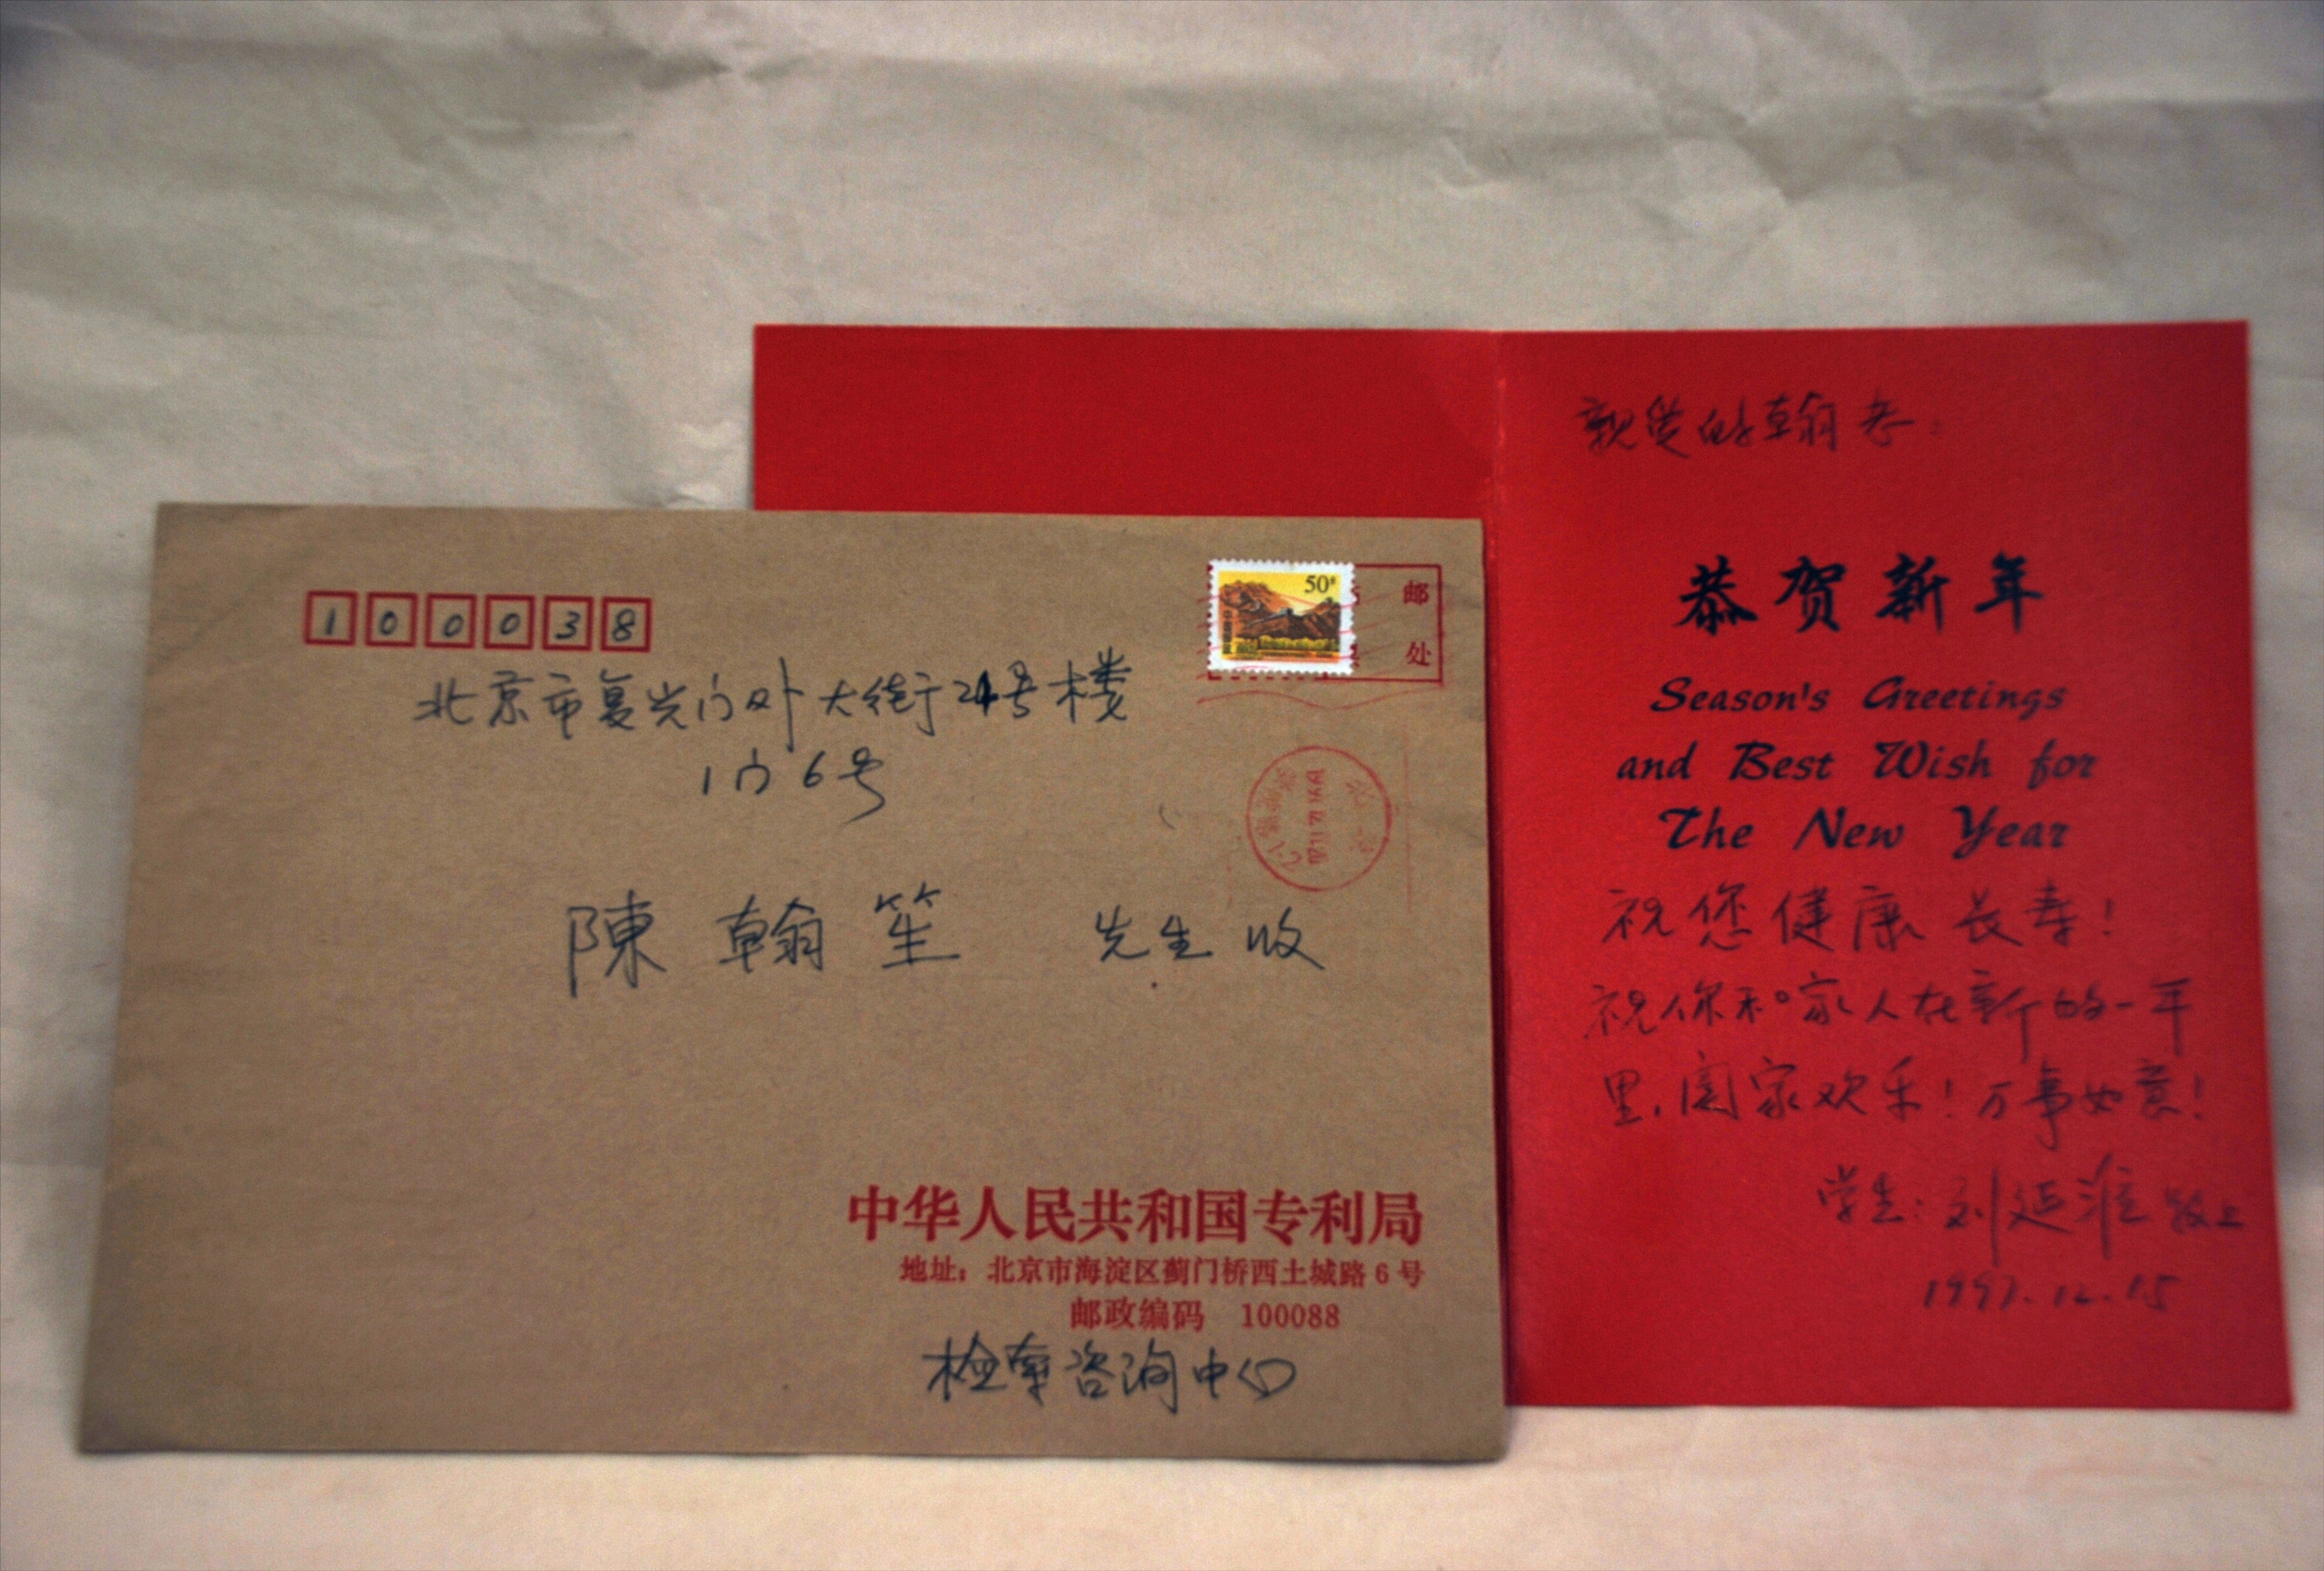 100038
50分
邮
处
北京市复兴门外大街24号楼
1门6号
北京
陳翰笙 先生 收
中华人民共和国专利局
地址：北京市海淀区蓟门桥西土城路6号
邮政编码 100088
检索咨询中心
亲爱的翰老：
恭贺新年
Season's Greetings
and Best Wish for
The New Year
祝您健康长寿！
祝你和家人在新的一年
里，阖家欢乐！万事如意！
学生：刘延淮 敬上
1997.12.15